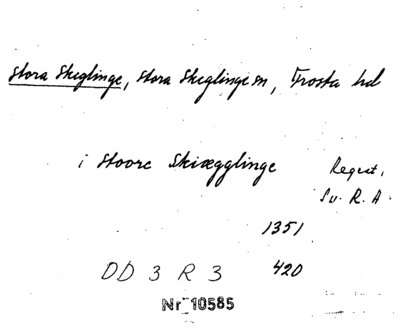 Stora Skeglinge, Stora Skeglinge sn, Frosta hd
i Stoore Skiægglinge
Regest,
Sv. R. A.
1351
DD 3 R 3 420
Nr 10585